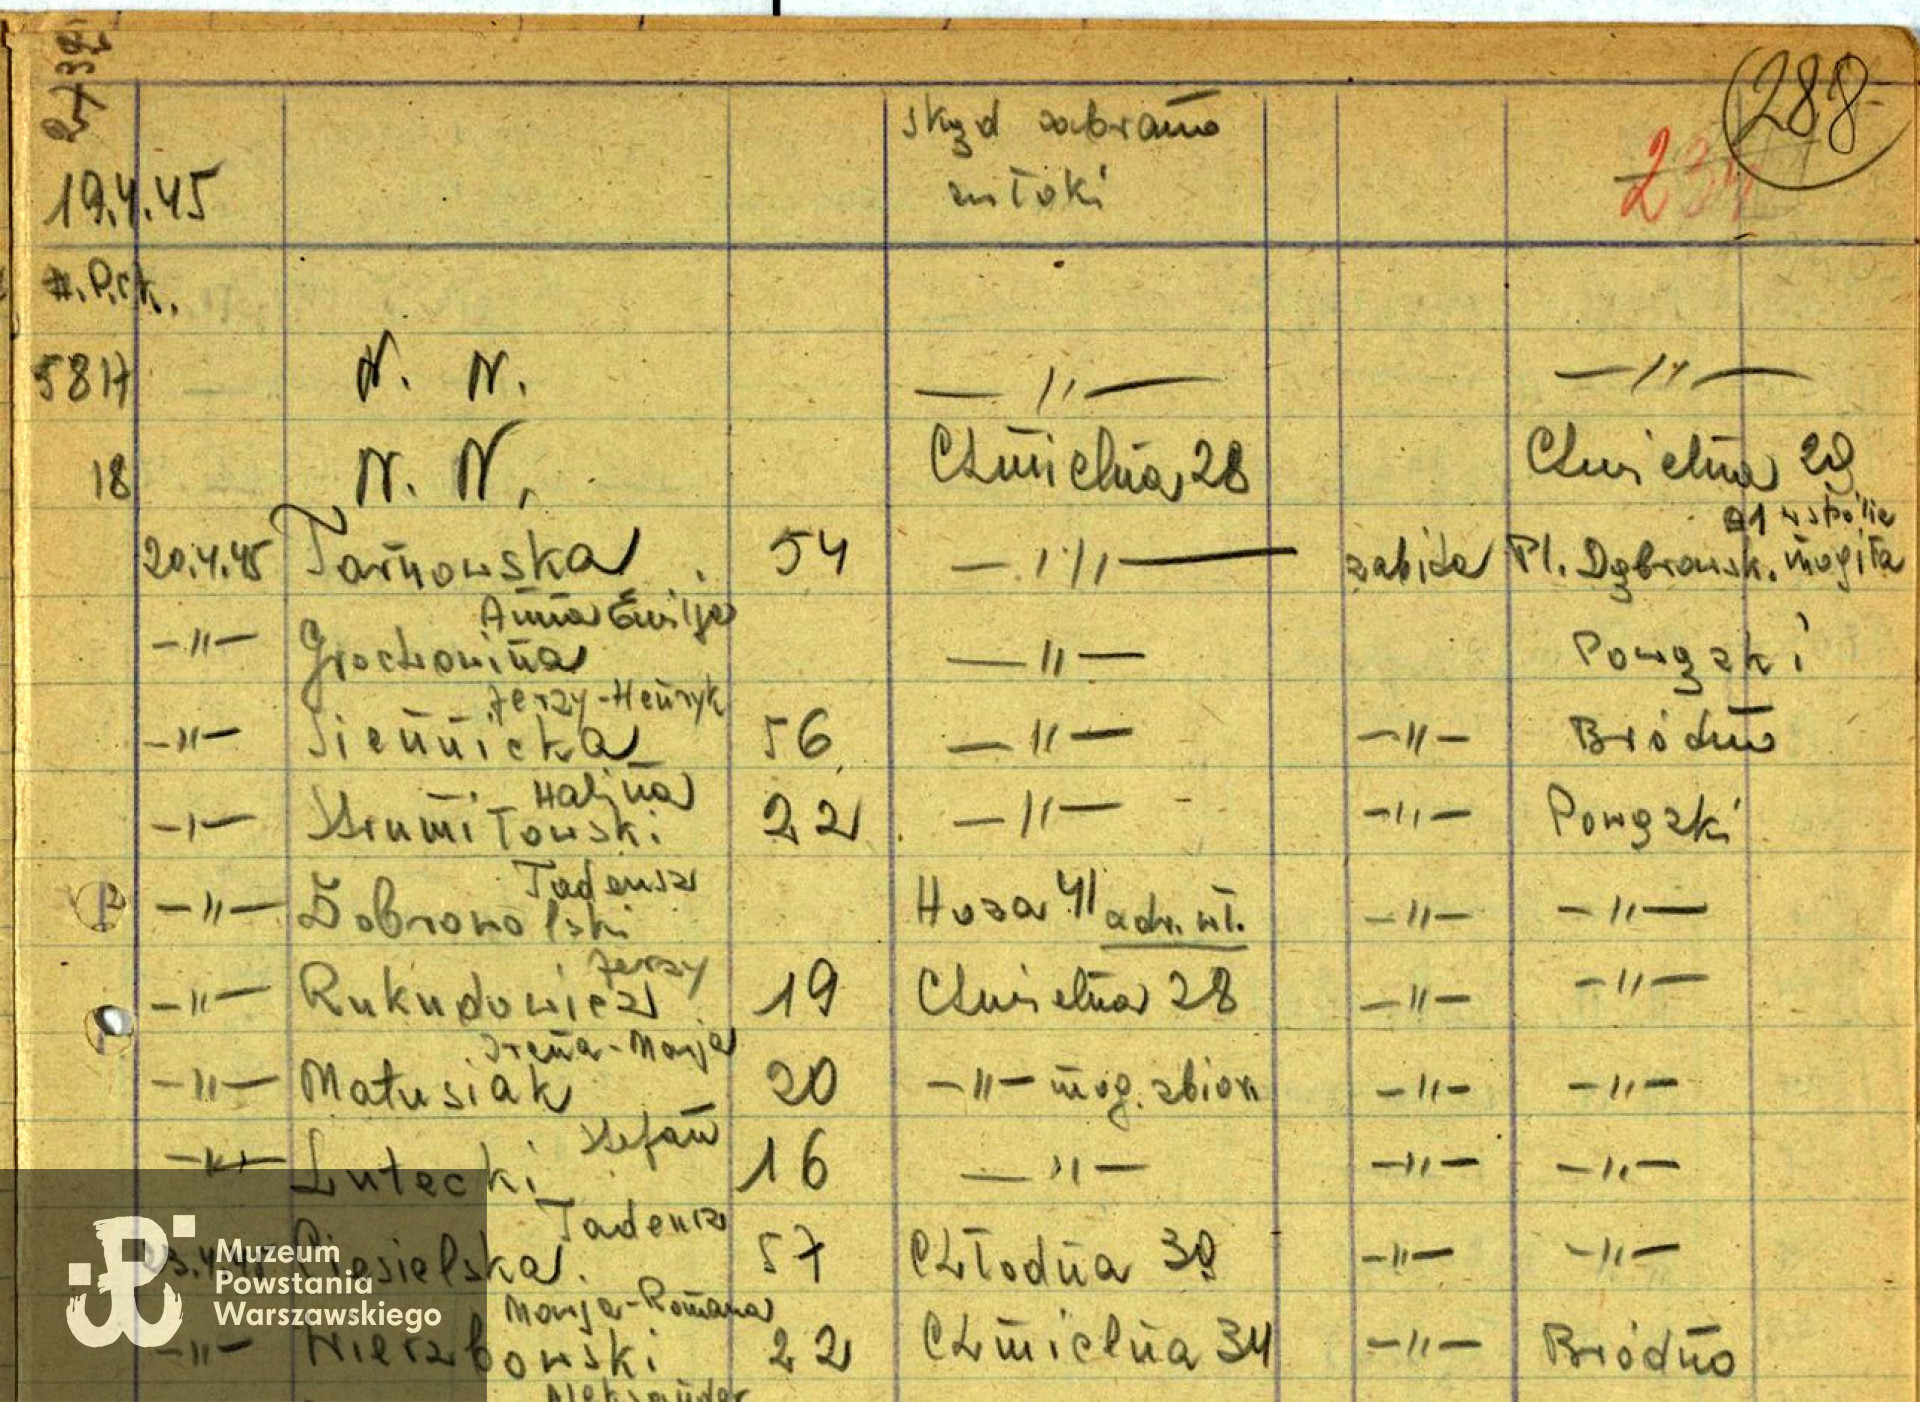 288
234
skąd zabrano
zwłoki
19.4.45
N.P.C.K.
5817 N. N. —"— —"—
18 N. N. Chmielna 28 Chmielna 29
20.4.45 Tarnowska 54 —"— zabita Pl. Dąbrowsk. 1 wspólna mogiła
Anna Emilja
—"— Grochowina —"— Powązki
Jerzy-Henryk
—"— Siennicka 56 —"— —"— Bródno
Halina
—"— Strumiłowski 22 —"— —"— Powązki
Tadeusz
—"— Dobrowolski Hoża 41 adr. wł. —"— —"—
Jerzy
—"— Rukudowicz 19 Chmielna 28 —"— —"—
Irena-Marja
—"— Matusiak 20 —"— mog. zbior. —"— —"—
Stefan
—"— Lutecki 16 —"— —"— —"—
Tadeusz
23.4.45 Ciesielska 57 Chłodna 39 —"— —"—
Marja-Romana
—"— Wierzbowski 22 Chmielna 34 —"— Bródno
Aleksander
Muzeum
Powstania
Warszawskiego